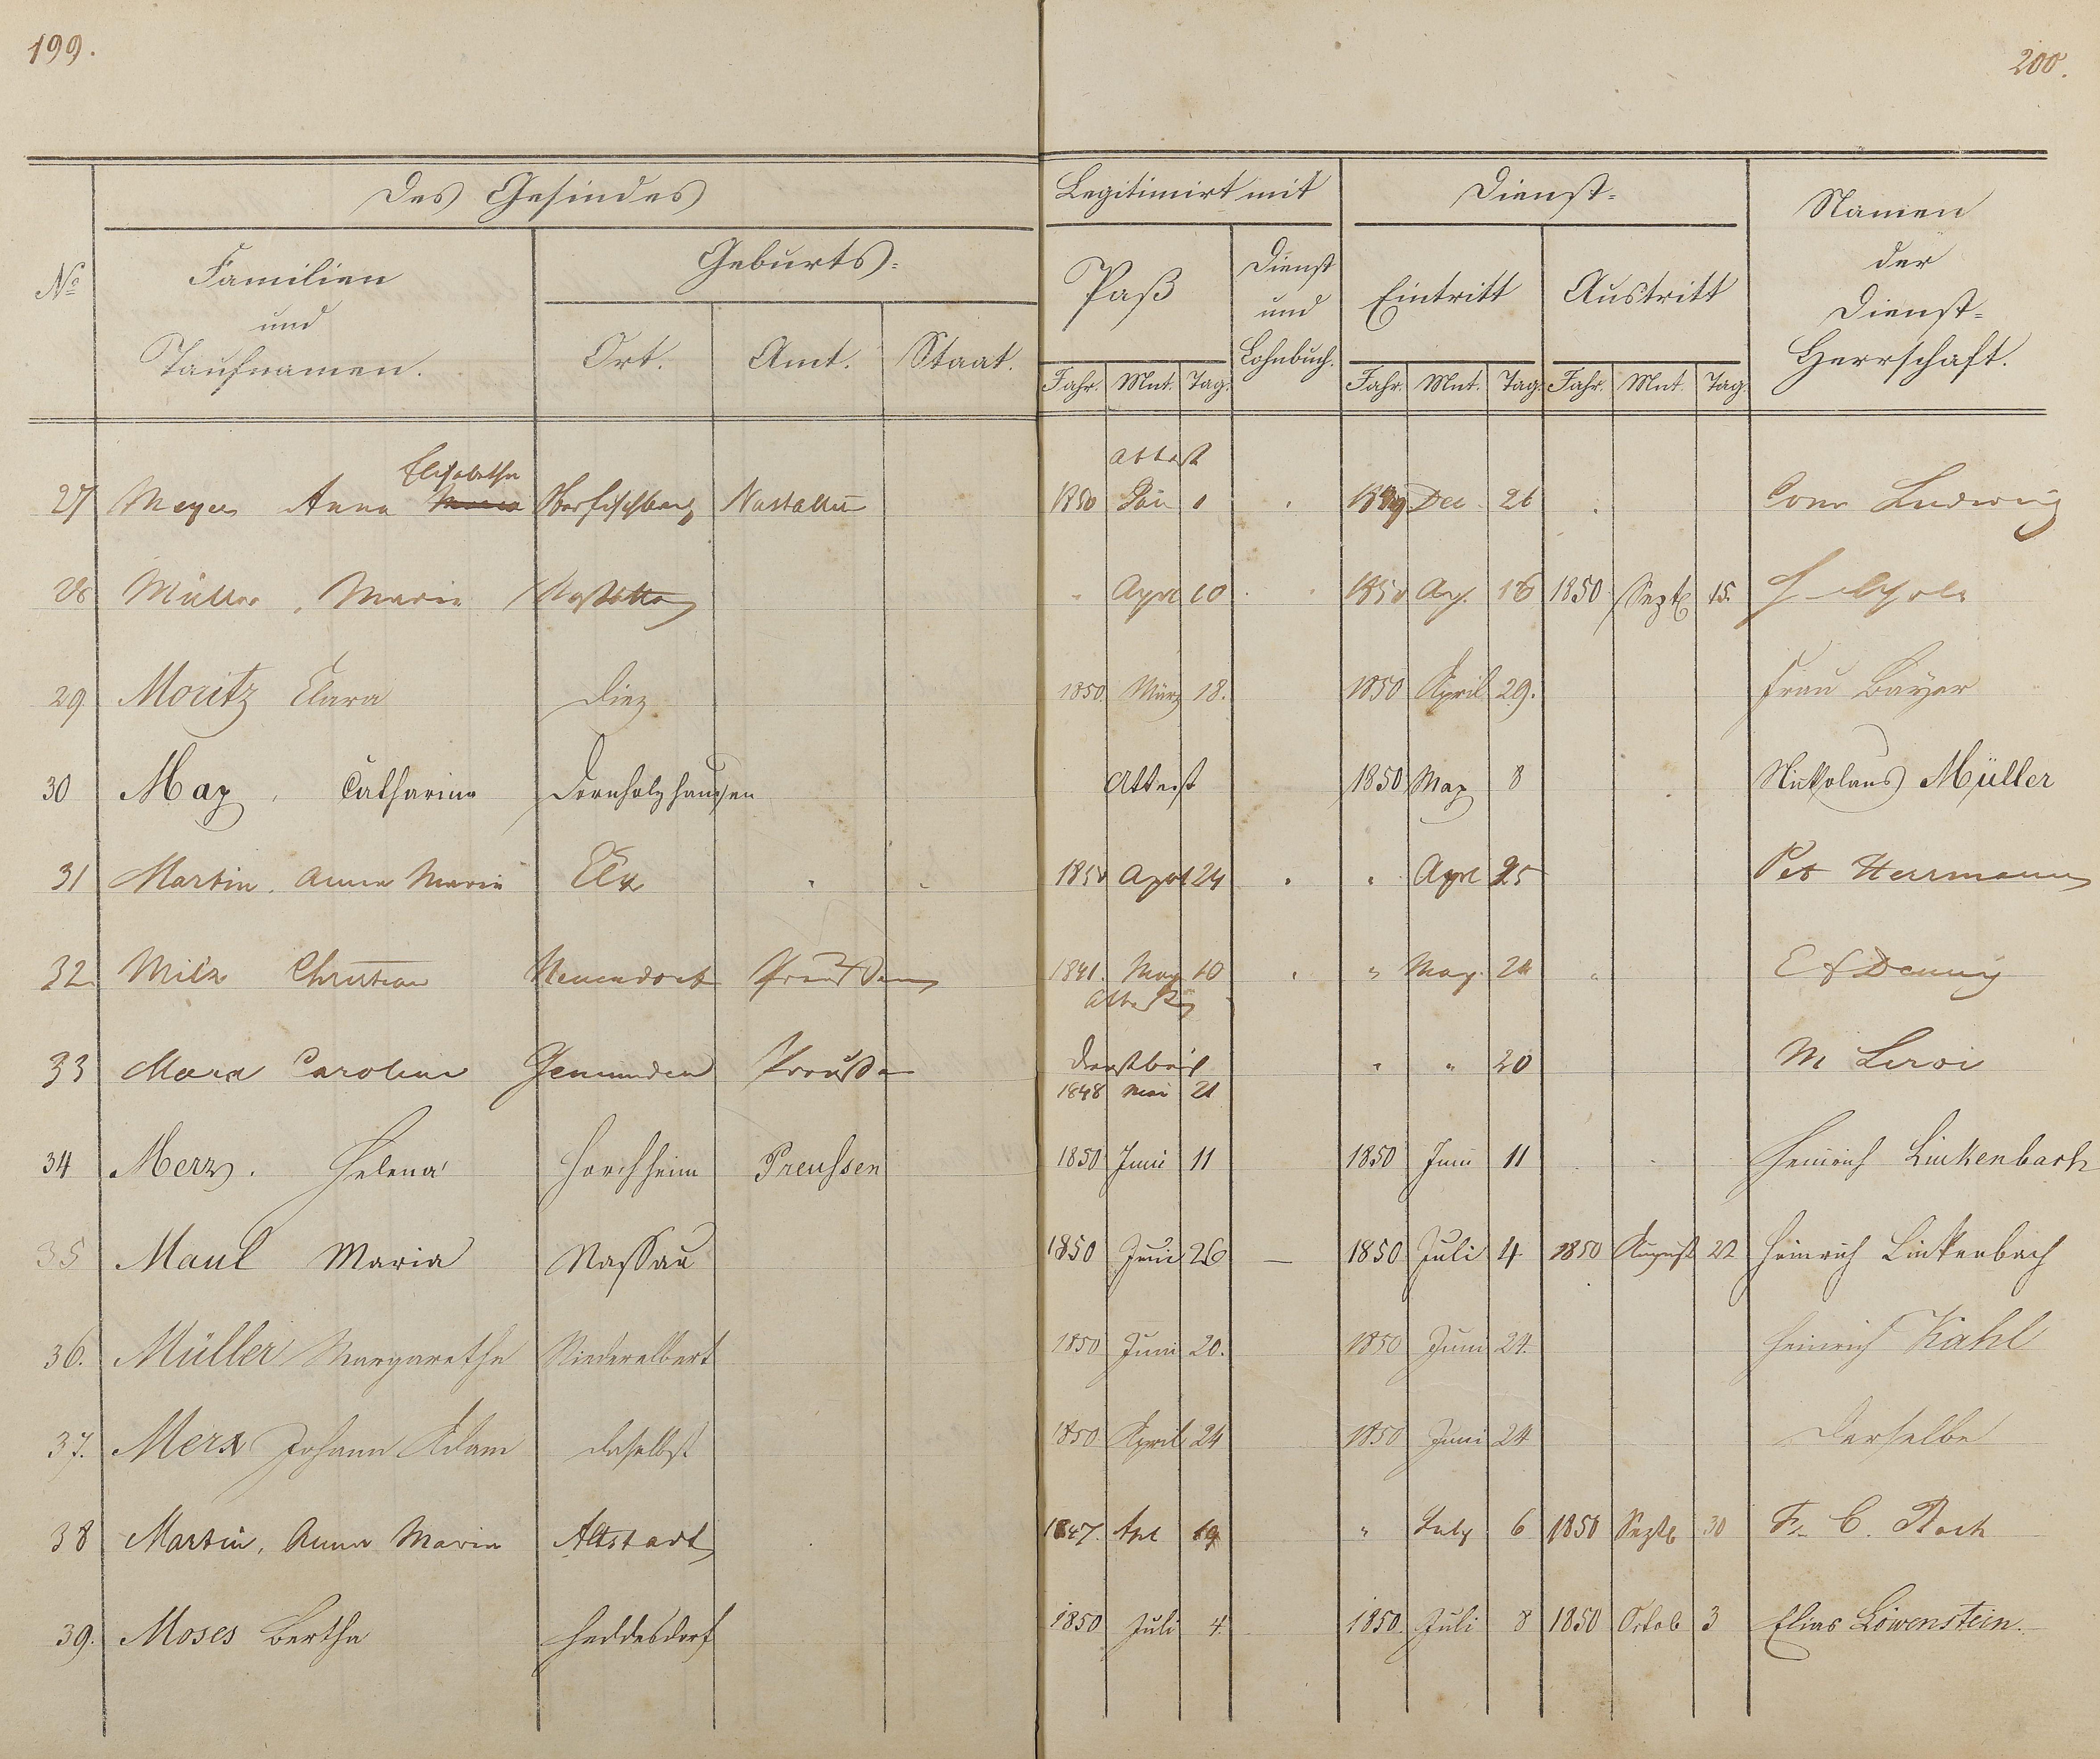 199.
200.
Des Gesindes
Legitimirt mit
Dienst-
Namen
der
Dienst-
Herrschaft.
No
Familien
und
Taufnamen.
Geburts-
Ort. Amt. Staat.
Paß
Dienst
und
Lohnbuch.
Eintritt Austritt
Jahr. Mnt. Tag. Jahr. Mnt. Tag. Jahr. Mnt. Tag.
Elisabetha
Attest
27 Meyer Anna Maria Oberfischbach Nastätten 1850 Jän 1 1849 Dec. 26 Conr Ludwig
28 Müller, Maria Nastätten " Aprl 10 1850 Ap. 16 1850 Septb 15.
29 Moritz Clara Diez 1850. März 18. 1850 April 29. Frau Bayer
30 May, Catharina Dornholzhausen Attest 1850 May 8 Nickolaus Müller
31 Martin. Anna Maria " " Aprl 24 " " Aprl 25 Pet Herrmann
32 Milz Christian Neuendorf Preußen 1841. May 10 " " May. 24
Attest
33 Caroline Gemünden Preußen Dienstbuch " " 20 M Leroi
1848 Mai 21
34 Merz. Helena Horchheim Preussen 1850 Juni 11 1850 Juni 11 Heinrich Linkenbach
35 Maul Maria Nassau 1850 Juni 26 — 1850 Juli 4 1850 August 22 Heinrich Linkenbach
36. Müller Margaretha Niederelbert 1850 Juni 20. 1850 Juni 24. Heinrich Kahl
37. Merx Johann Adam daselbst 1850 April 24 1850 Juni 24 Derselbe
38 Martin, Anna Maria Altstadt 1847. Apl 19 " July 6 1850 Septb 30 Fr. C. Bach
39. Moses Bertha Heddesdorf 1850 Juli 4. 1850. Juli 8 1850 Octob 3 Elias Löwenstein.